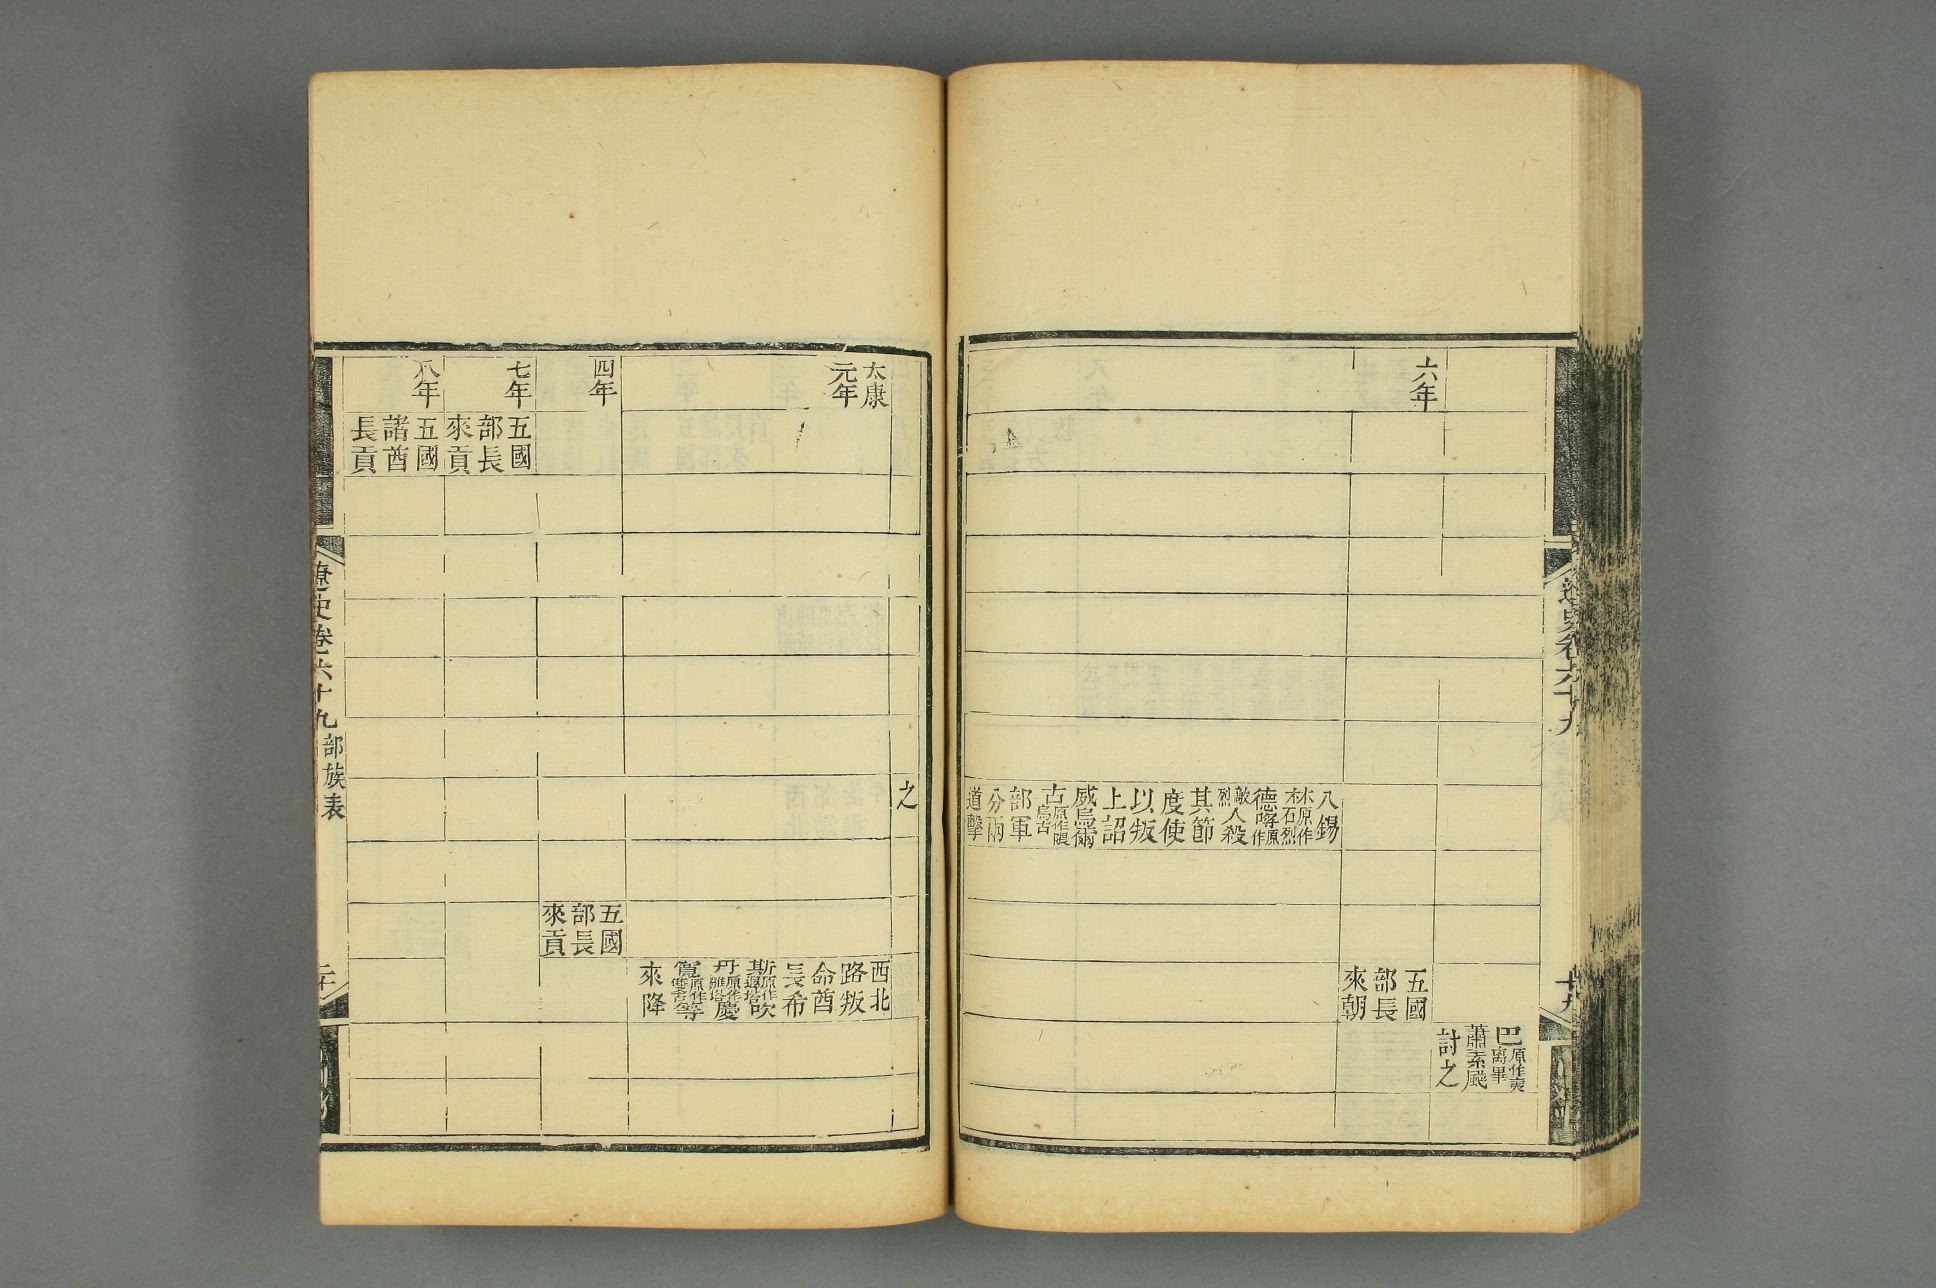 遼史卷六十九
十九
巴原作爽离畢
蕭素颭
討之
六年
五國
部長
來朝
八錫
林原作石烈
德哷原作
敵烈人殺
其節
度使
以叛
上詔
威烏爾
古原作隈烏古
部軍
分兩
道擊
之
太康
元年
西北
路叛
命酋
長希
斯原作遐塔吹
丹原作雛塔慶
寬原作雙古等
來降
四年
五國
部長
來貢
七年
五國
部長
來貢
八年
五國
諸酋
長貢
遼史卷六十九 部族表
二十